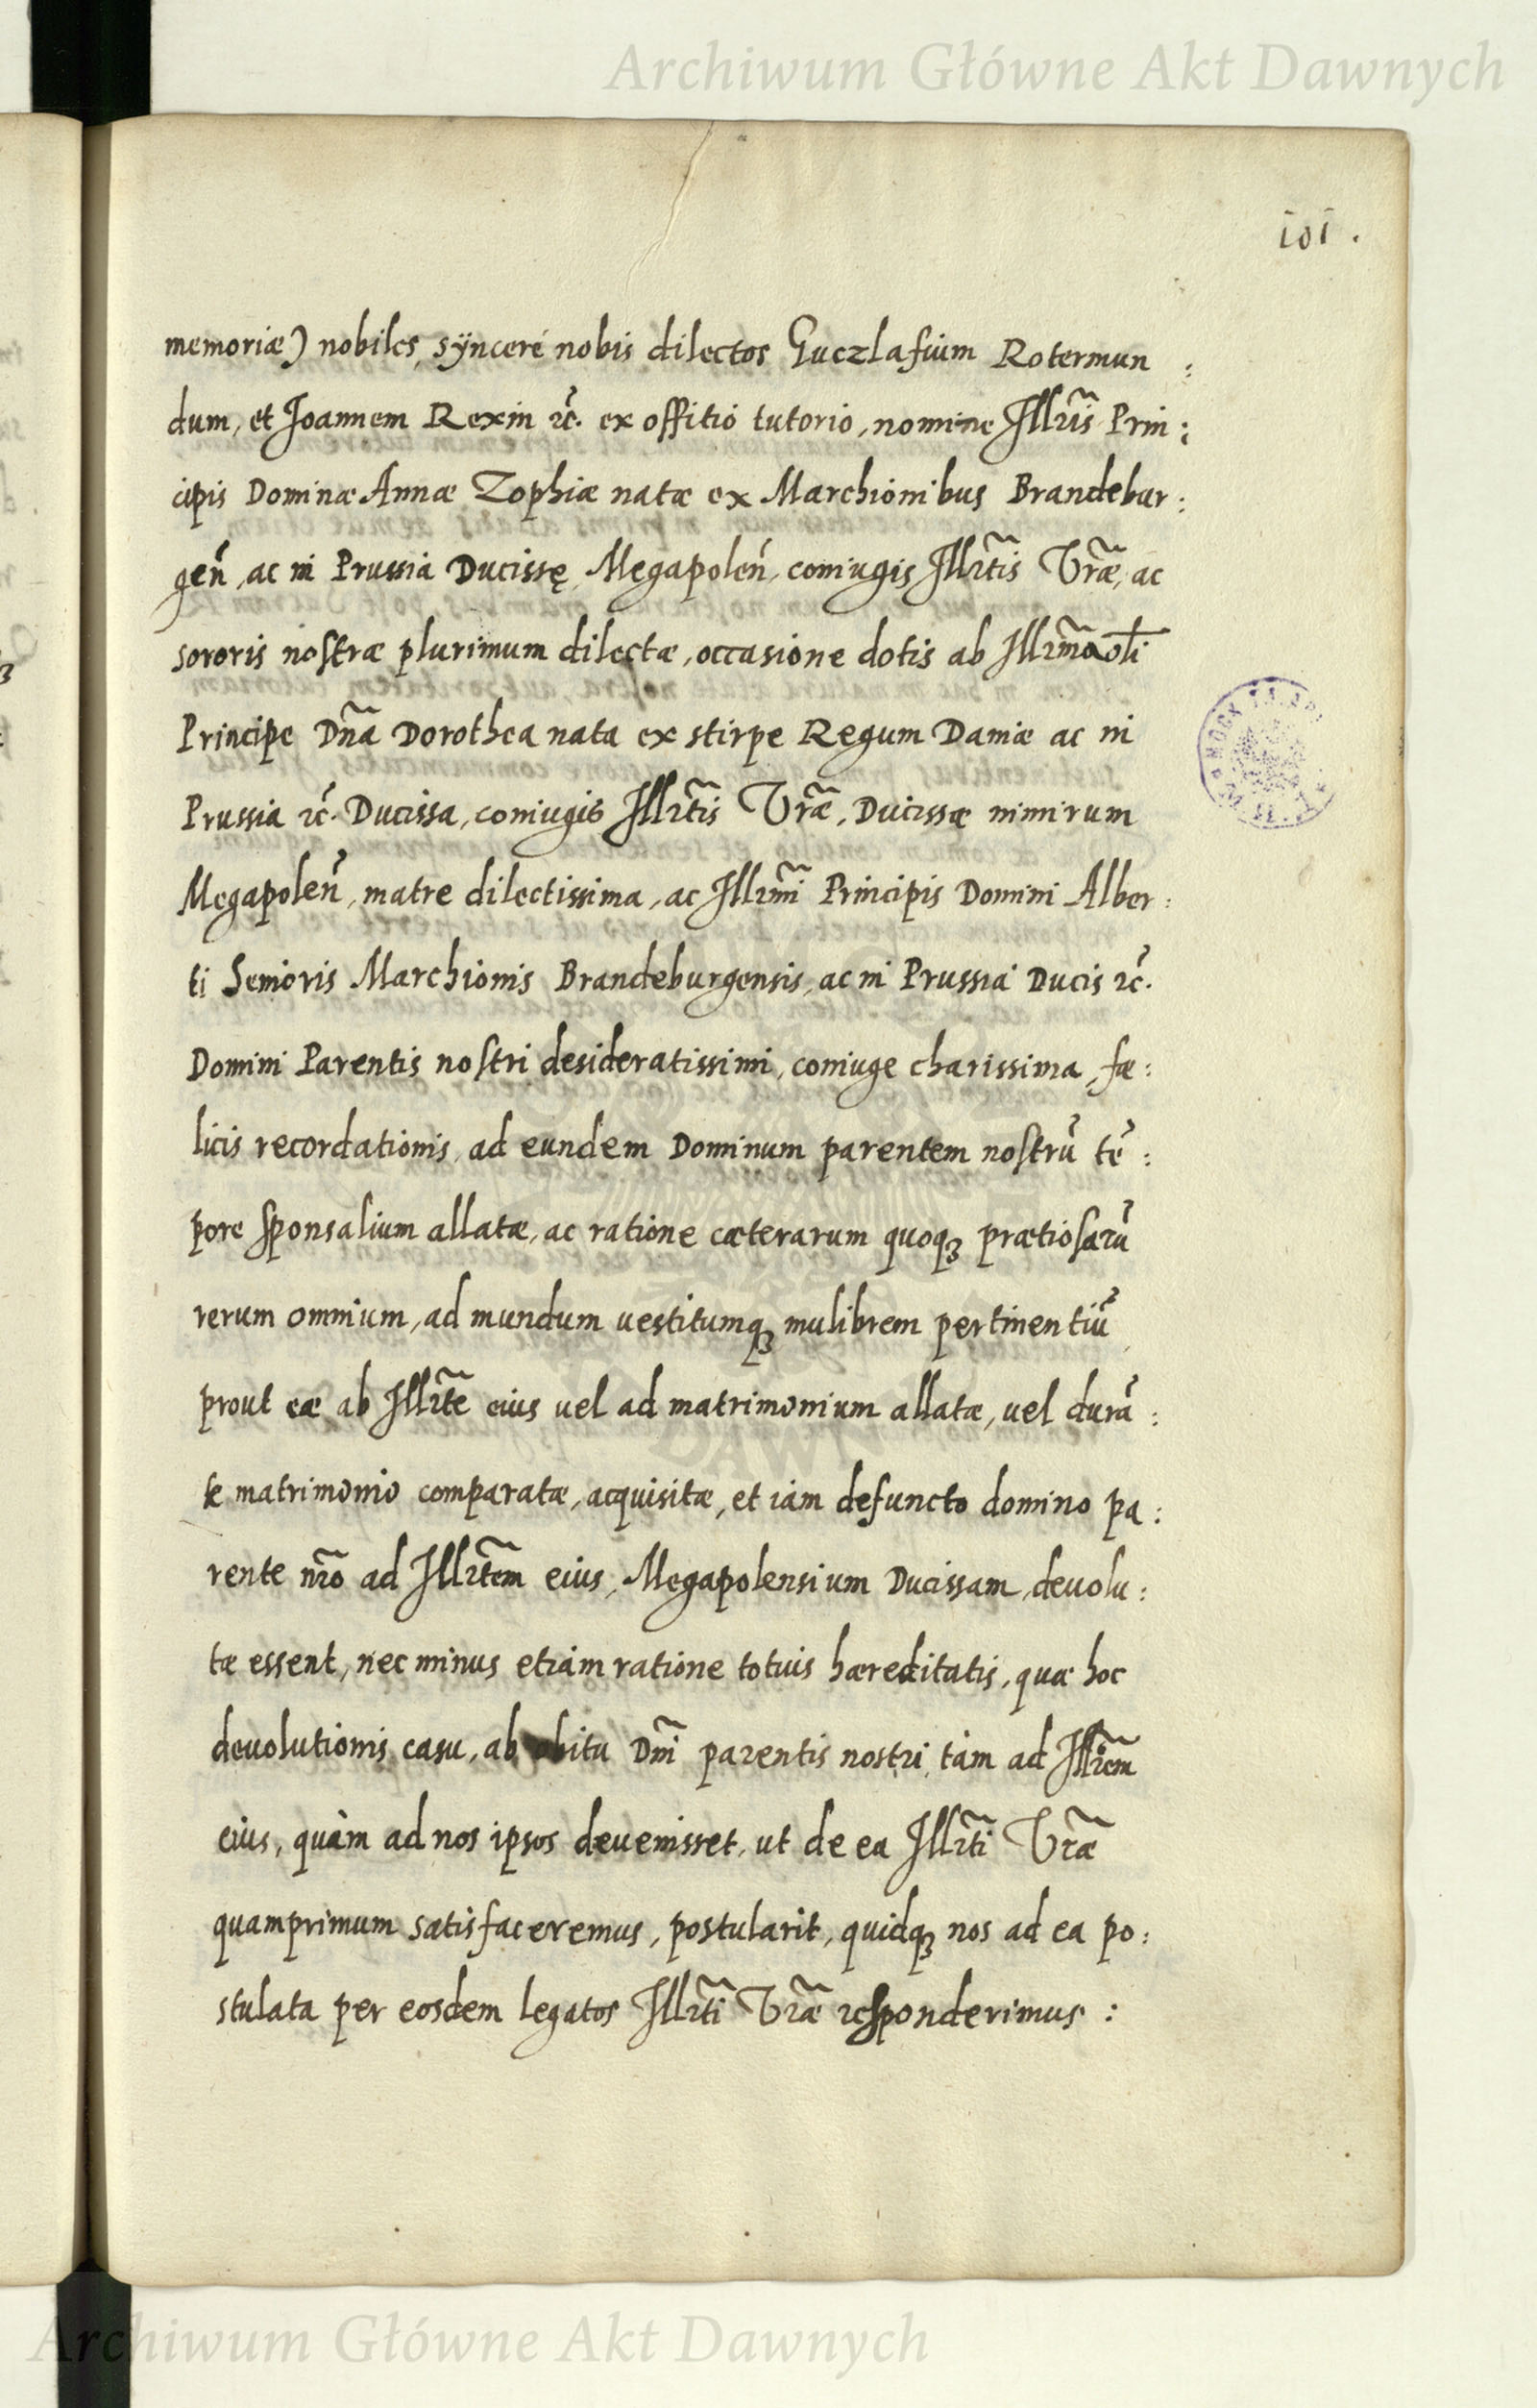 Archiwum Główne Akt Dawnych
101.
memoriæ) nobiles, sÿncerè nobis dilectos Guczlafium Rotermun :
dum, et Joannem Rexin ꝛc̃. ex offitio tutorio, nomine Illr̃is Prin :
cipis Dominæ Annæ Zophiæ natæ ex Marchionibus Brandebur :
geñ, ac in Prussia Ducissę, Megapoleñ, coniugis Illr̃tis Vr̃æ, ac
sororis nostræ plurimum dilectæ, occasione dotis ab Illr̃ma oli
Principe Dña Dorothea nata ex stirpe Regum Daniæ ac in
Prussia ꝛc̃. Ducissa, coniugis Illr̃tis Vr̃æ, Ducissæ nimirum
Megapoleñ, matre dilectissima, ac Illr̃mi Principis Domini Alber :
ti Senioris Marchionis Brandeburgensis, ac in Prussia Ducis ꝛc̃.
Domini Parentis nostri desideratissimi, coniuge charissima, fæ :
licis recordationis, ad eundem Dominum parentem nostrũ tẽ :
pore sponsalium allatæ, ac ratione cæterarum quoqꝫ prætiosarũ
rerum omnium, ad mundum uestitumqꝫ mulibrem pertinentiũ
prout eæ ab Illr̃te eius uel ad matrimonium allatæ, uel durã :
te matrimonio comparatæ, acquisitæ, et iam defuncto domino pa :
rente nr̃o ad Illr̃tem eius, Megapolensium Ducissam, deuolu :
tæ essent, nec minus etiam ratione totius hæreditatis, quæ hoc
deuolutionis casu, ab obitu Dñi parentis nostri, tàm ad Illr̃em
eius, quàm ad nos ipsos deuenisset, ut de ea Illr̃ti Vr̃æ
quamprimum satisfaceremus, postularit, quidqꝫ nos ad ea po :
stulata per eosdem legatos Illr̃ti Vr̃æ responderimus :
Archiwum Główne Akt Dawnych